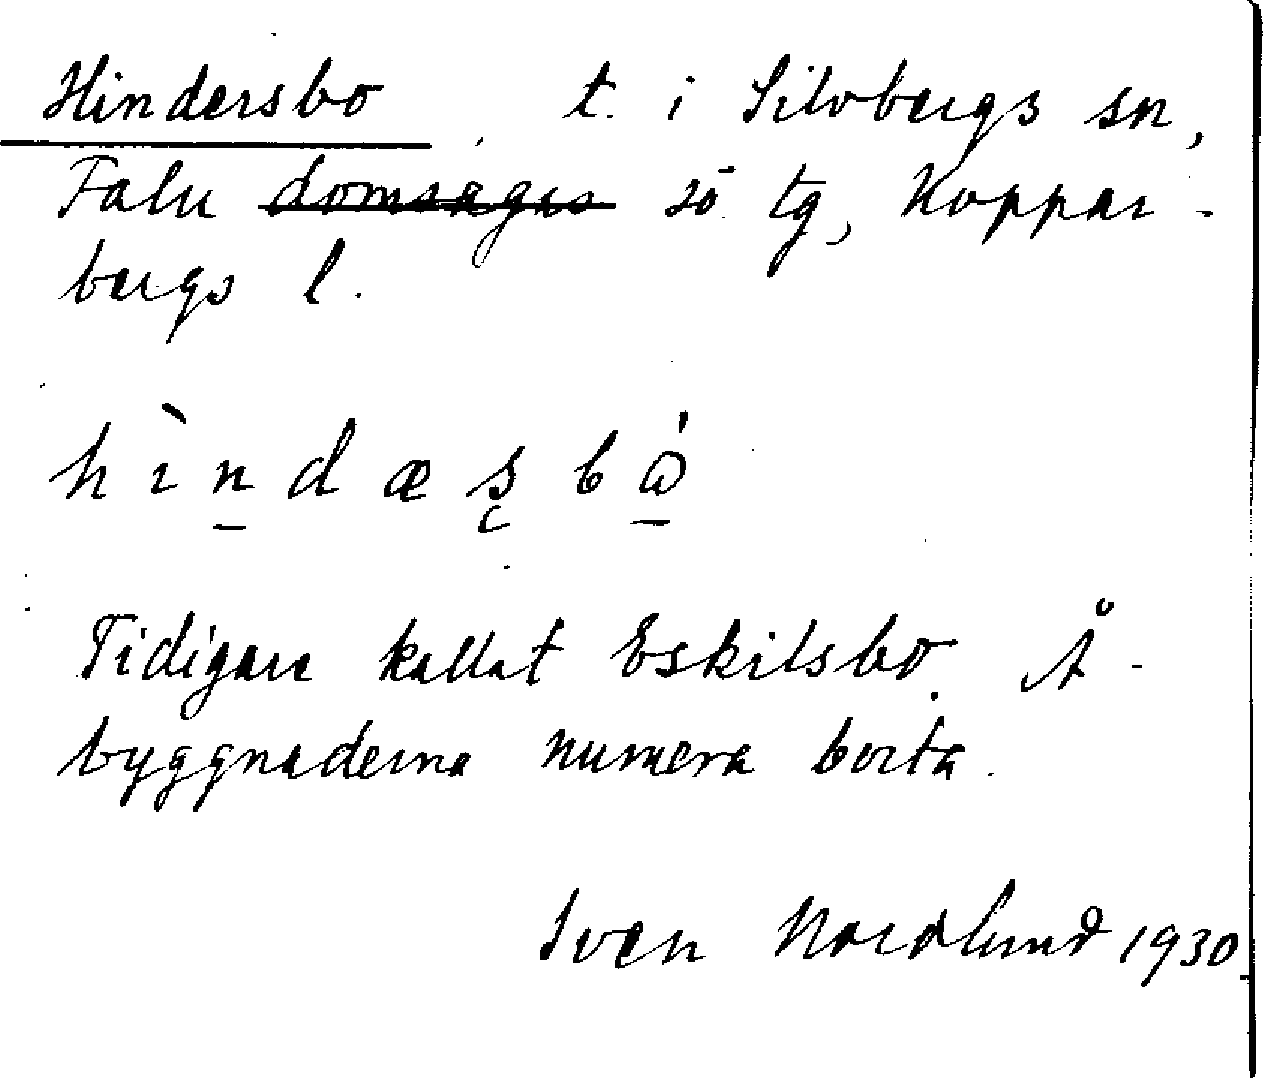 Hindersbo, t. i Silvbergs sn,
Falu domsagas sö tg, Koppar-
bergs l.
hìn̲dæʂbώ̲
Tidigare kallat Eskilsbo. Å-
byggnaderna numera borta.
Sven Nordlund 1930.